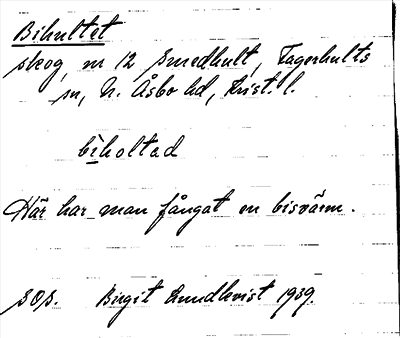 Bihultet
skog, nr 12 Smedhult, Fagerhults
sn, N. Åsbo hd, Krist. l.
bìholtad
Här har man fångat en bisvärm.
sos. Birgit Lundkvist 1939.